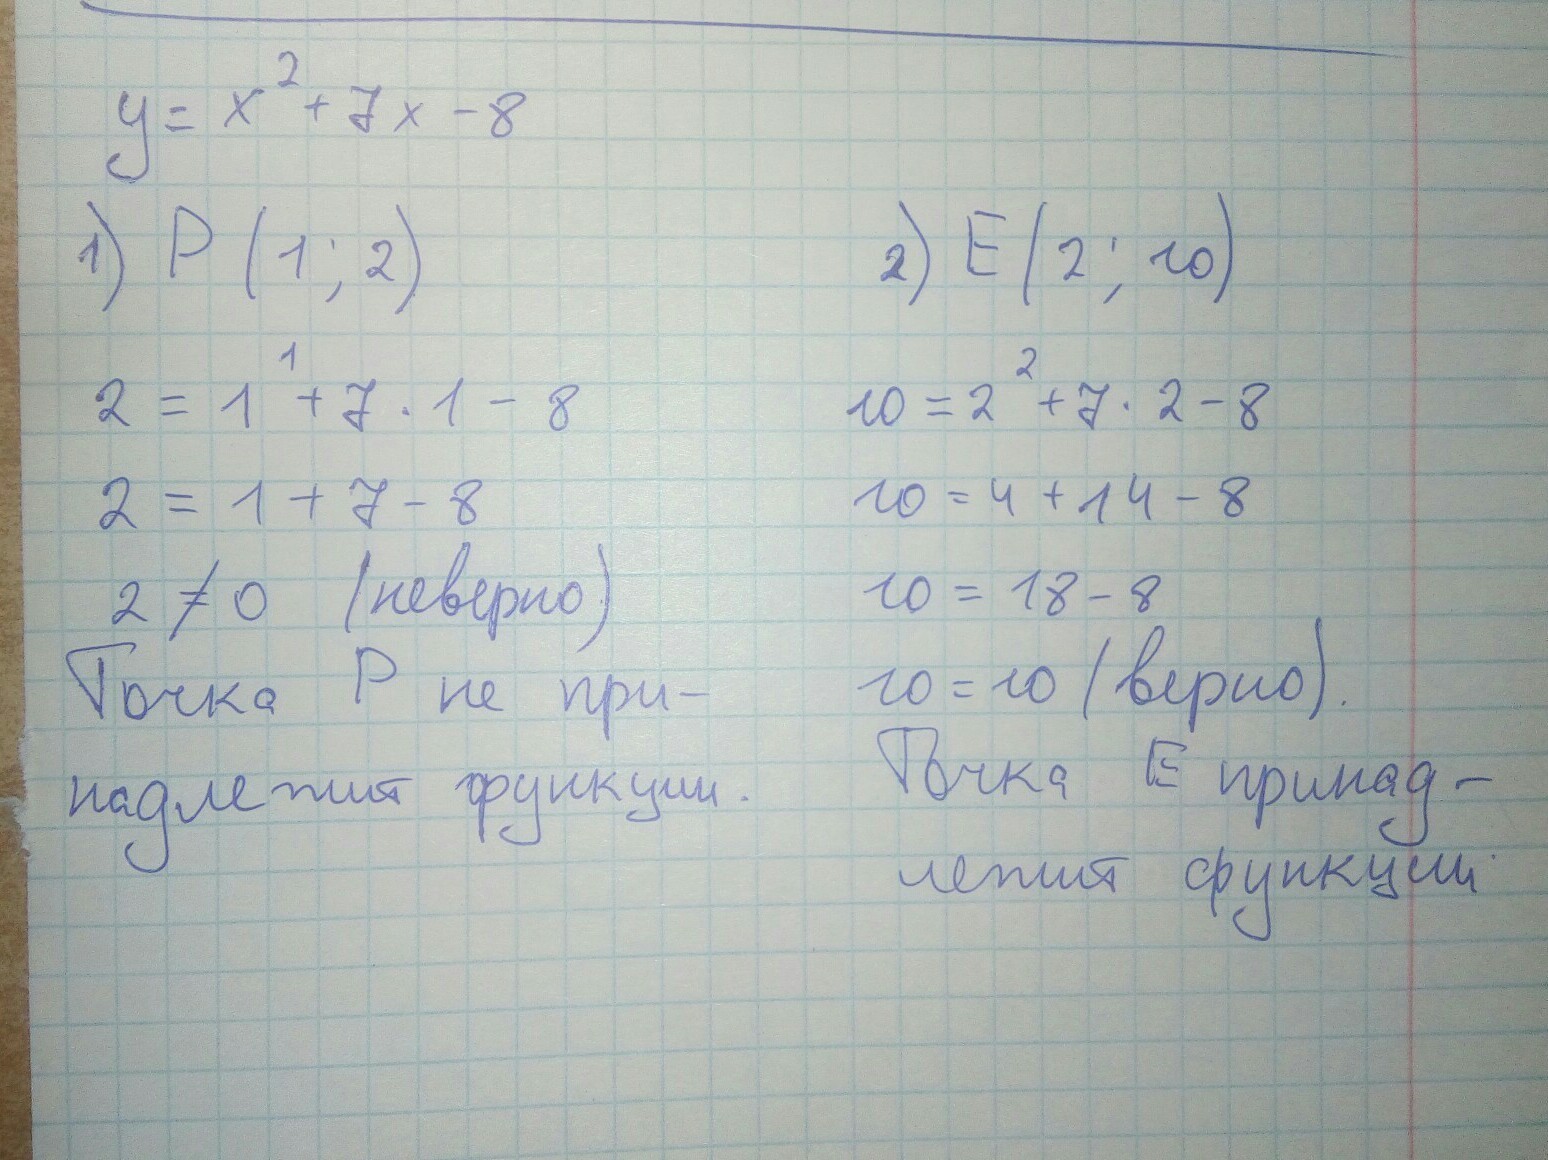 y = x² + 7x - 8
1) P (1; 2)
2 = 1¹ + 7 · 1 - 8
2 = 1 + 7 - 8
2 ≠ 0 (неверно)
Точка P не при-
надлежит функции.
2) E (2; 10)
10 = 2² + 7 · 2 - 8
10 = 4 + 14 - 8
10 = 18 - 8
10 = 10 (верно).
Точка E принад-
лежит функции